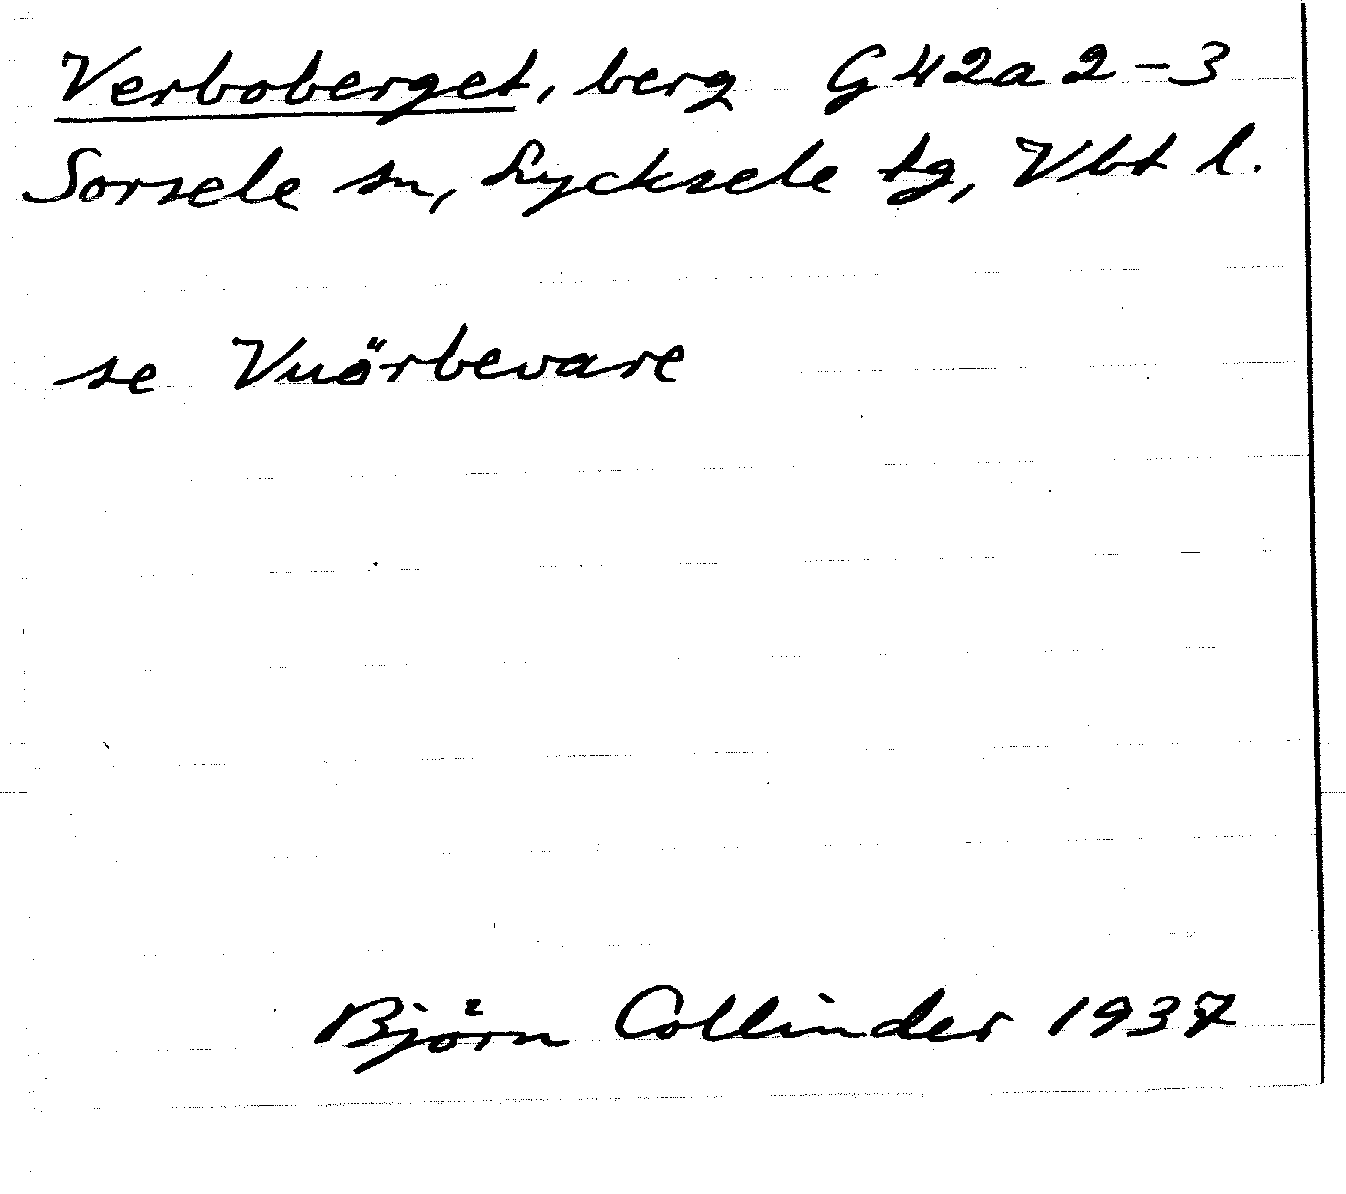 Verboberget, berg G 42a 2-3
Sorsele sn, Lycksele tg, Vbt l.
se Vuörbevare
Björn Collinder 1937